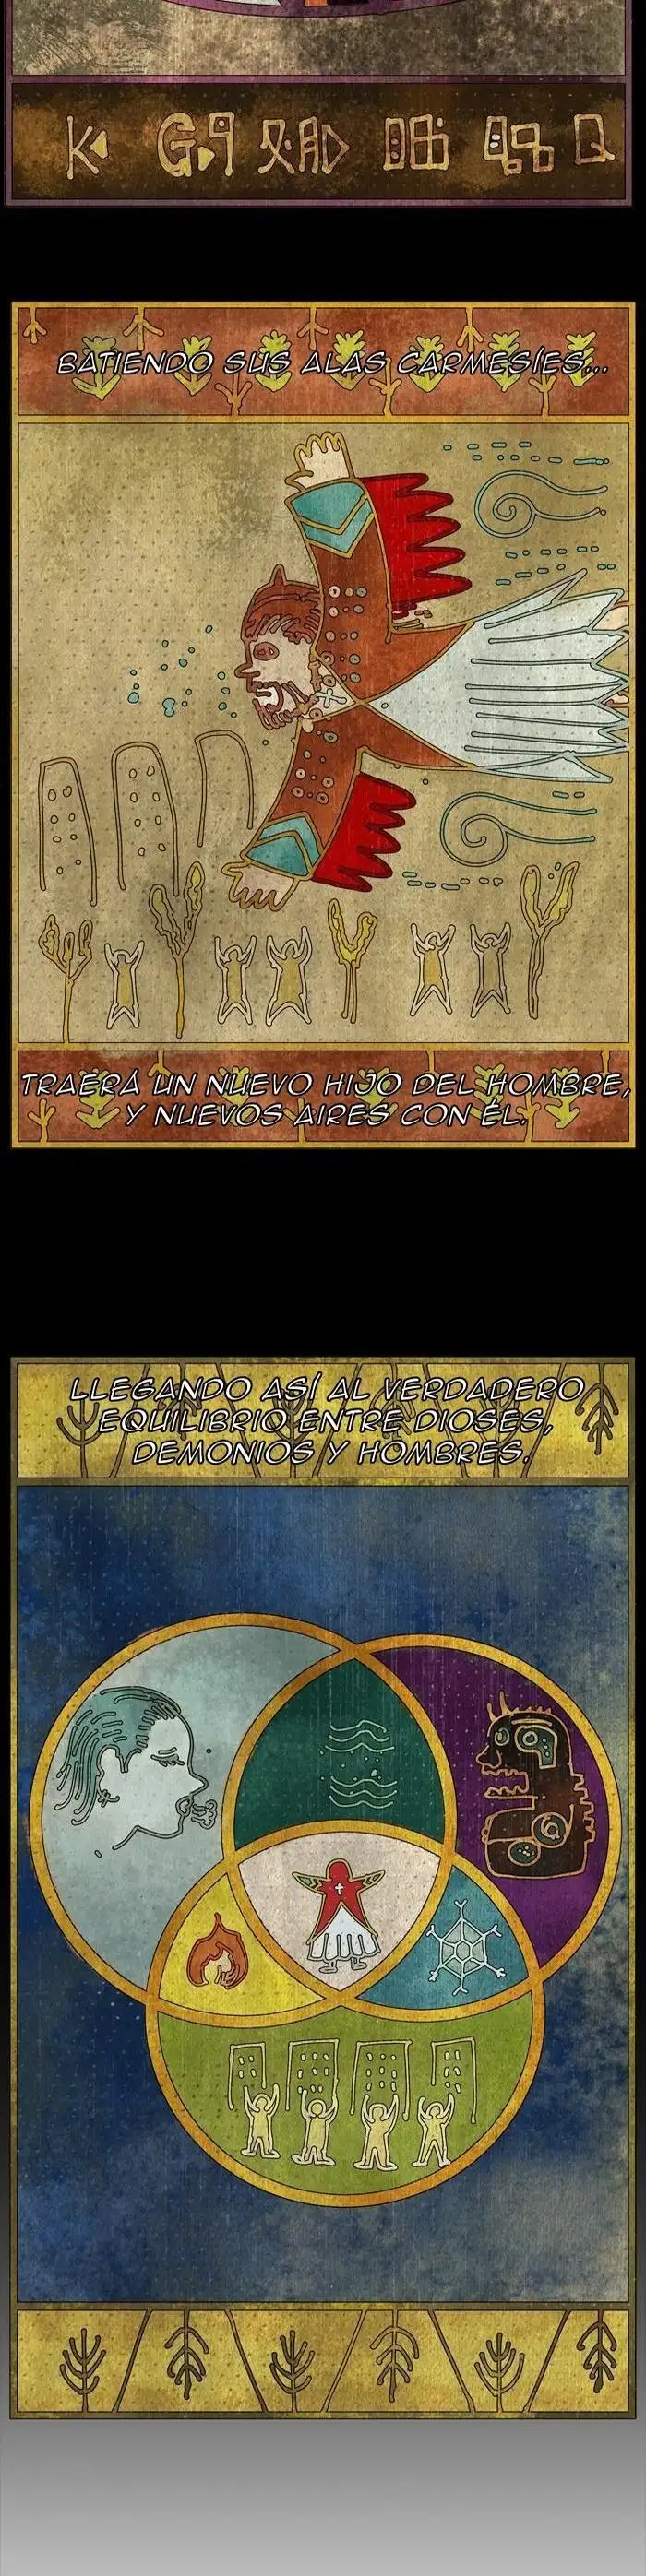 BATIENDO SUS ALAS CARMESÍES...
TRAERÁ UN NUEVO HIJO DEL HOMBRE,
Y NUEVOS AIRES CON ÉL.
LLEGANDO ASÍ AL VERDADERO
EQUILIBRIO ENTRE DIOSES,
DEMONIOS Y HOMBRES.